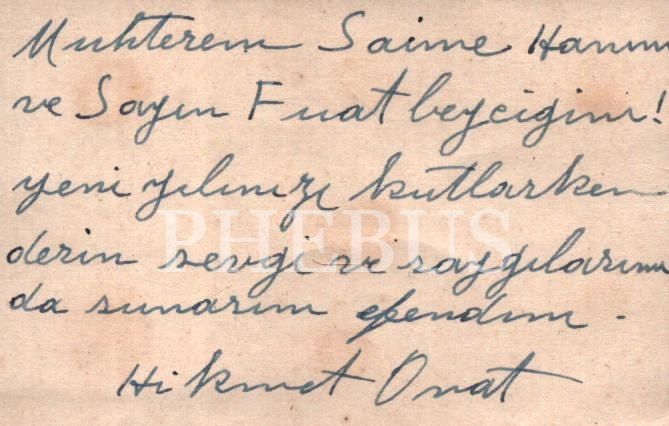 Muhterem Saime Hanım
ve Sayın Fuat beyciğim!
yeni yılınızı kutlarken
PHEBUS
derin sevgi ve saygılarımı
da sunarım efendim.
Hikmet Onat